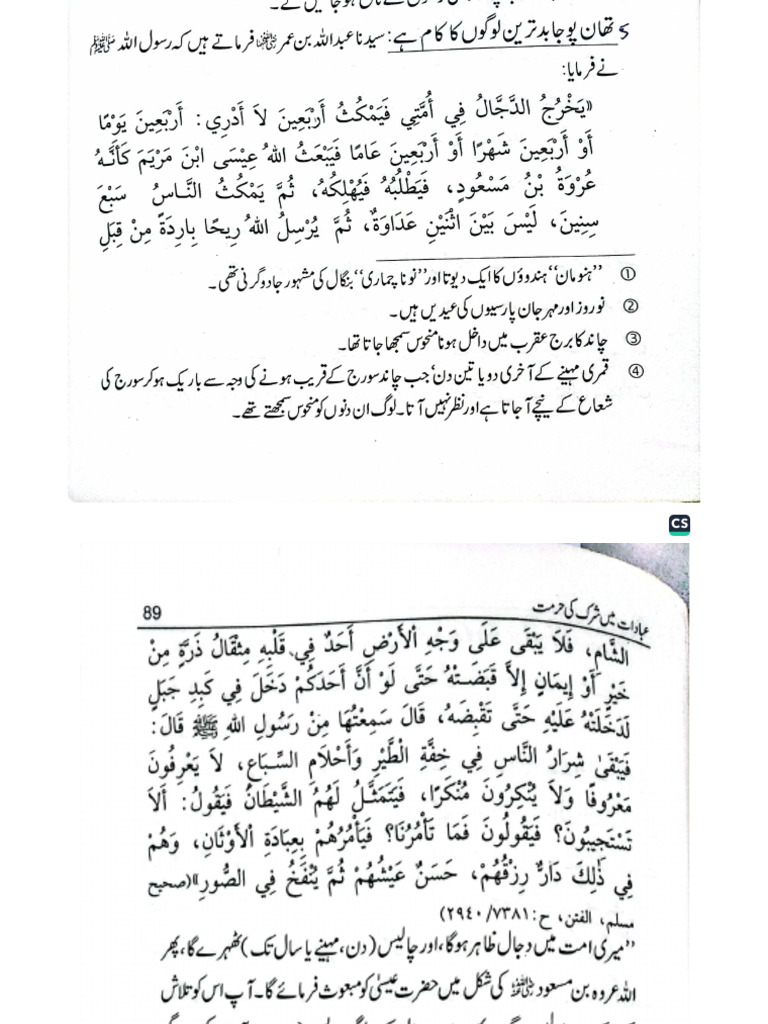 5 تھان پوجا بدترین لوگوں کا کام ہے: سیدنا عبداللہ بن عمر ؓ فرماتے ہیں کہ رسول اللہ ﷺ
نے فرمایا:
«يَخْرُجُ الدَّجَّالُ فِي أُمَّتِي فَيَمْكُثُ أَرْبَعِينَ لاَ أَدْرِي: أَرْبَعِينَ يَوْمًا
أَوْ أَرْبَعِينَ شَهْرًا أَوْ أَرْبَعِينَ عَامًا فَيَبْعَثُ اللهُ عِيْسَى ابْنَ مَرْيَمَ كَأَنَّهُ
عُرْوَةُ بْنُ مَسْعُودٍ، فَيَطْلُبُهُ فَيُهْلِكُهُ، ثُمَّ يَمْكُثُ النَّاسُ سَبْعَ
سِنِينَ، لَيْسَ بَيْنَ اثْنَيْنِ عَدَاوَةٌ، ثُمَّ يُرْسِلُ اللهُ رِيحًا بِارِدَةً مِنْ قِبَلِ
① ”ہنومان“ ہندوؤں کا ایک دیوتا اور ”لونا چماری“ بنگال کی مشہور جادوگرنی تھی۔
② نوروز اور مہرجان پارسیوں کی عیدیں ہیں۔
③ چاند کا برج عقرب میں داخل ہونا منحوس سمجھا جاتا تھا۔
④ قمری مہینے کے آخری دو یا تین دن، جب چاند سورج کے قریب ہونے کی وجہ سے باریک ہو کر سورج کی
شعاع کے نیچے آ جاتا ہے اور نظر نہیں آتا۔ لوگ ان دنوں کو منحوس سمجھتے تھے۔
CS
عبادات میں شرک کی حرمت 89
الشَّامِ، فَلاَ يَبْقَى عَلَى وَجْهِ الْأَرْضِ أَحَدٌ فِي قَلْبِهِ مِثْقَالُ ذَرَّةٍ مِنْ
خَيْرٍ أَوْ إِيمَانٍ إِلاَّ قَبَضَتْهُ حَتَّى لَوْ أَنَّ أَحَدَكُمْ دَخَلَ فِي كَبِدِ جَبَلٍ
لَدَخَلَتْهُ عَلَيْهِ حَتَّى تَقْبِضَهُ، قَالَ سَمِعْتُهَا مِنْ رَسُولِ اللهِ ﷺ قَالَ:
فَيَبْقَى شِرَارُ النَّاسِ فِي خِفَّةِ الْطَّيْرِ وَأَحْلاَمِ السِّبَاعِ، لاَ يَعْرِفُونَ
مَعْرُوفًا وَلاَ يُنْكِرُونَ مُنْكَرًا، فَيَتَمَثَّلُ لَهُمُ الشَّيْطَانُ فَيَقُولُ: أَلاَ
تَسْتَجِيبُونَ؟ فَيَقُولُونَ فَمَا تَأْمُرُنَا؟ فَيَأْمُرُهُمْ بِعِبَادَةِ الْأَوْثَانِ، وَهُمْ
فِي ذٰلِكَ دَارٌّ رِزْقُهُمْ، حَسَنٌ عَيْشُهُمْ ثُمَّ يُنْفَخُ فِي الصُّورِ»(صحيح
مسلم، الفتن، ح:٧٣٨١/٢٩٤٠)
”میری امت میں دجال ظاہر ہوگا، اور چالیس (دن، مہینے یا سال تک) ٹھہرے گا، پھر
اللہ عروہ بن مسعود ؓ کی شکل میں حضرت عیسیٰ کو مبعوث فرمائے گا۔ آپ اس کو تلاش